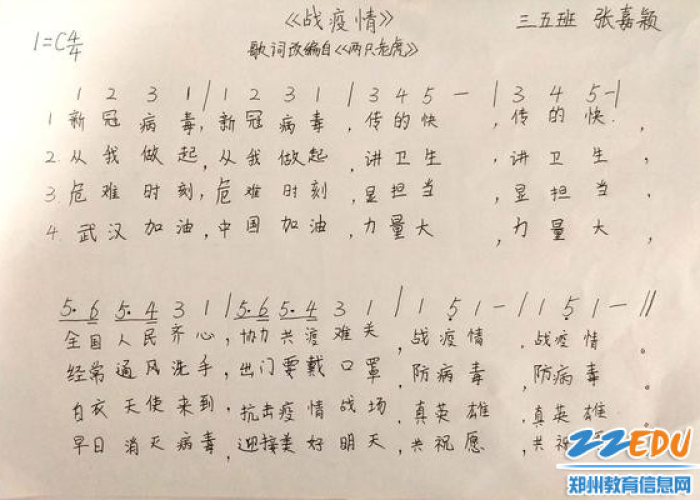 《战疫情》 三五班 张嘉颖
1=C4/4 歌词改编自《两只老虎》
1 2 3 1 | 1 2 3 1 | 3 4 5 - | 3 4 5 - |
1 新冠病毒,新冠病毒,传的快,传的快,
2. 从我做起,从我做起,讲卫生,讲卫生,
3. 危难时刻,危难时刻,显担当,显担当,
4. 武汉加油,中国加油,力量大,力量大,
5. 6 5. 4 3 1 | 5. 6 5. 4 3 1 | 1 5̣ 1 - | 1 5̣ 1 - ||
全国人民齐心,协力共疫难关,战疫情,战疫情。
经常通风洗手,出门要戴口罩,防病毒,防病毒。
白衣天使来到,抗击疫情战场,真英雄,真英雄.
早日消灭病毒,迎接美好明天,共祝愿,共祝
ZZEDU
郑州教育信息网